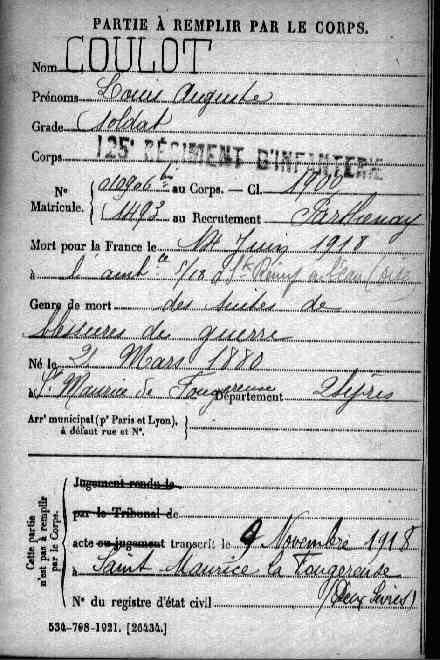 PARTIE À REMPLIR PAR LE CORPS.
Nom COULOT
Prénoms Louis Auguste
Grade Soldat
Corps 125e RÉGIMENT D'INFANTERIE
N° Matricule. { 010906 bis au Corps. — Cl. 1900
1493 au Recrutement Parthenay
Mort pour la France le 14 Juin 1918
à l'amb ce 5/18 à St Rémy à l'Eau (Oise)
Genre de mort des suites de
blessures de guerre
Né le 21 Mars 1880
à St Maurice la Fougereuse Département 2 Sèvres
Arrt municipal (pr Paris et Lyon),
à défaut rue et N°.
Cette partie n'est pas à remplir par le Corps.
Jugement rendu le
par le Tribunal de
acte ou jugement transcrit le 9 Novembre 1918
à Saint Maurice la Fougereuse
(Deux Sèvres)
N° du registre d'état civil
534-708-1921. [26434.]